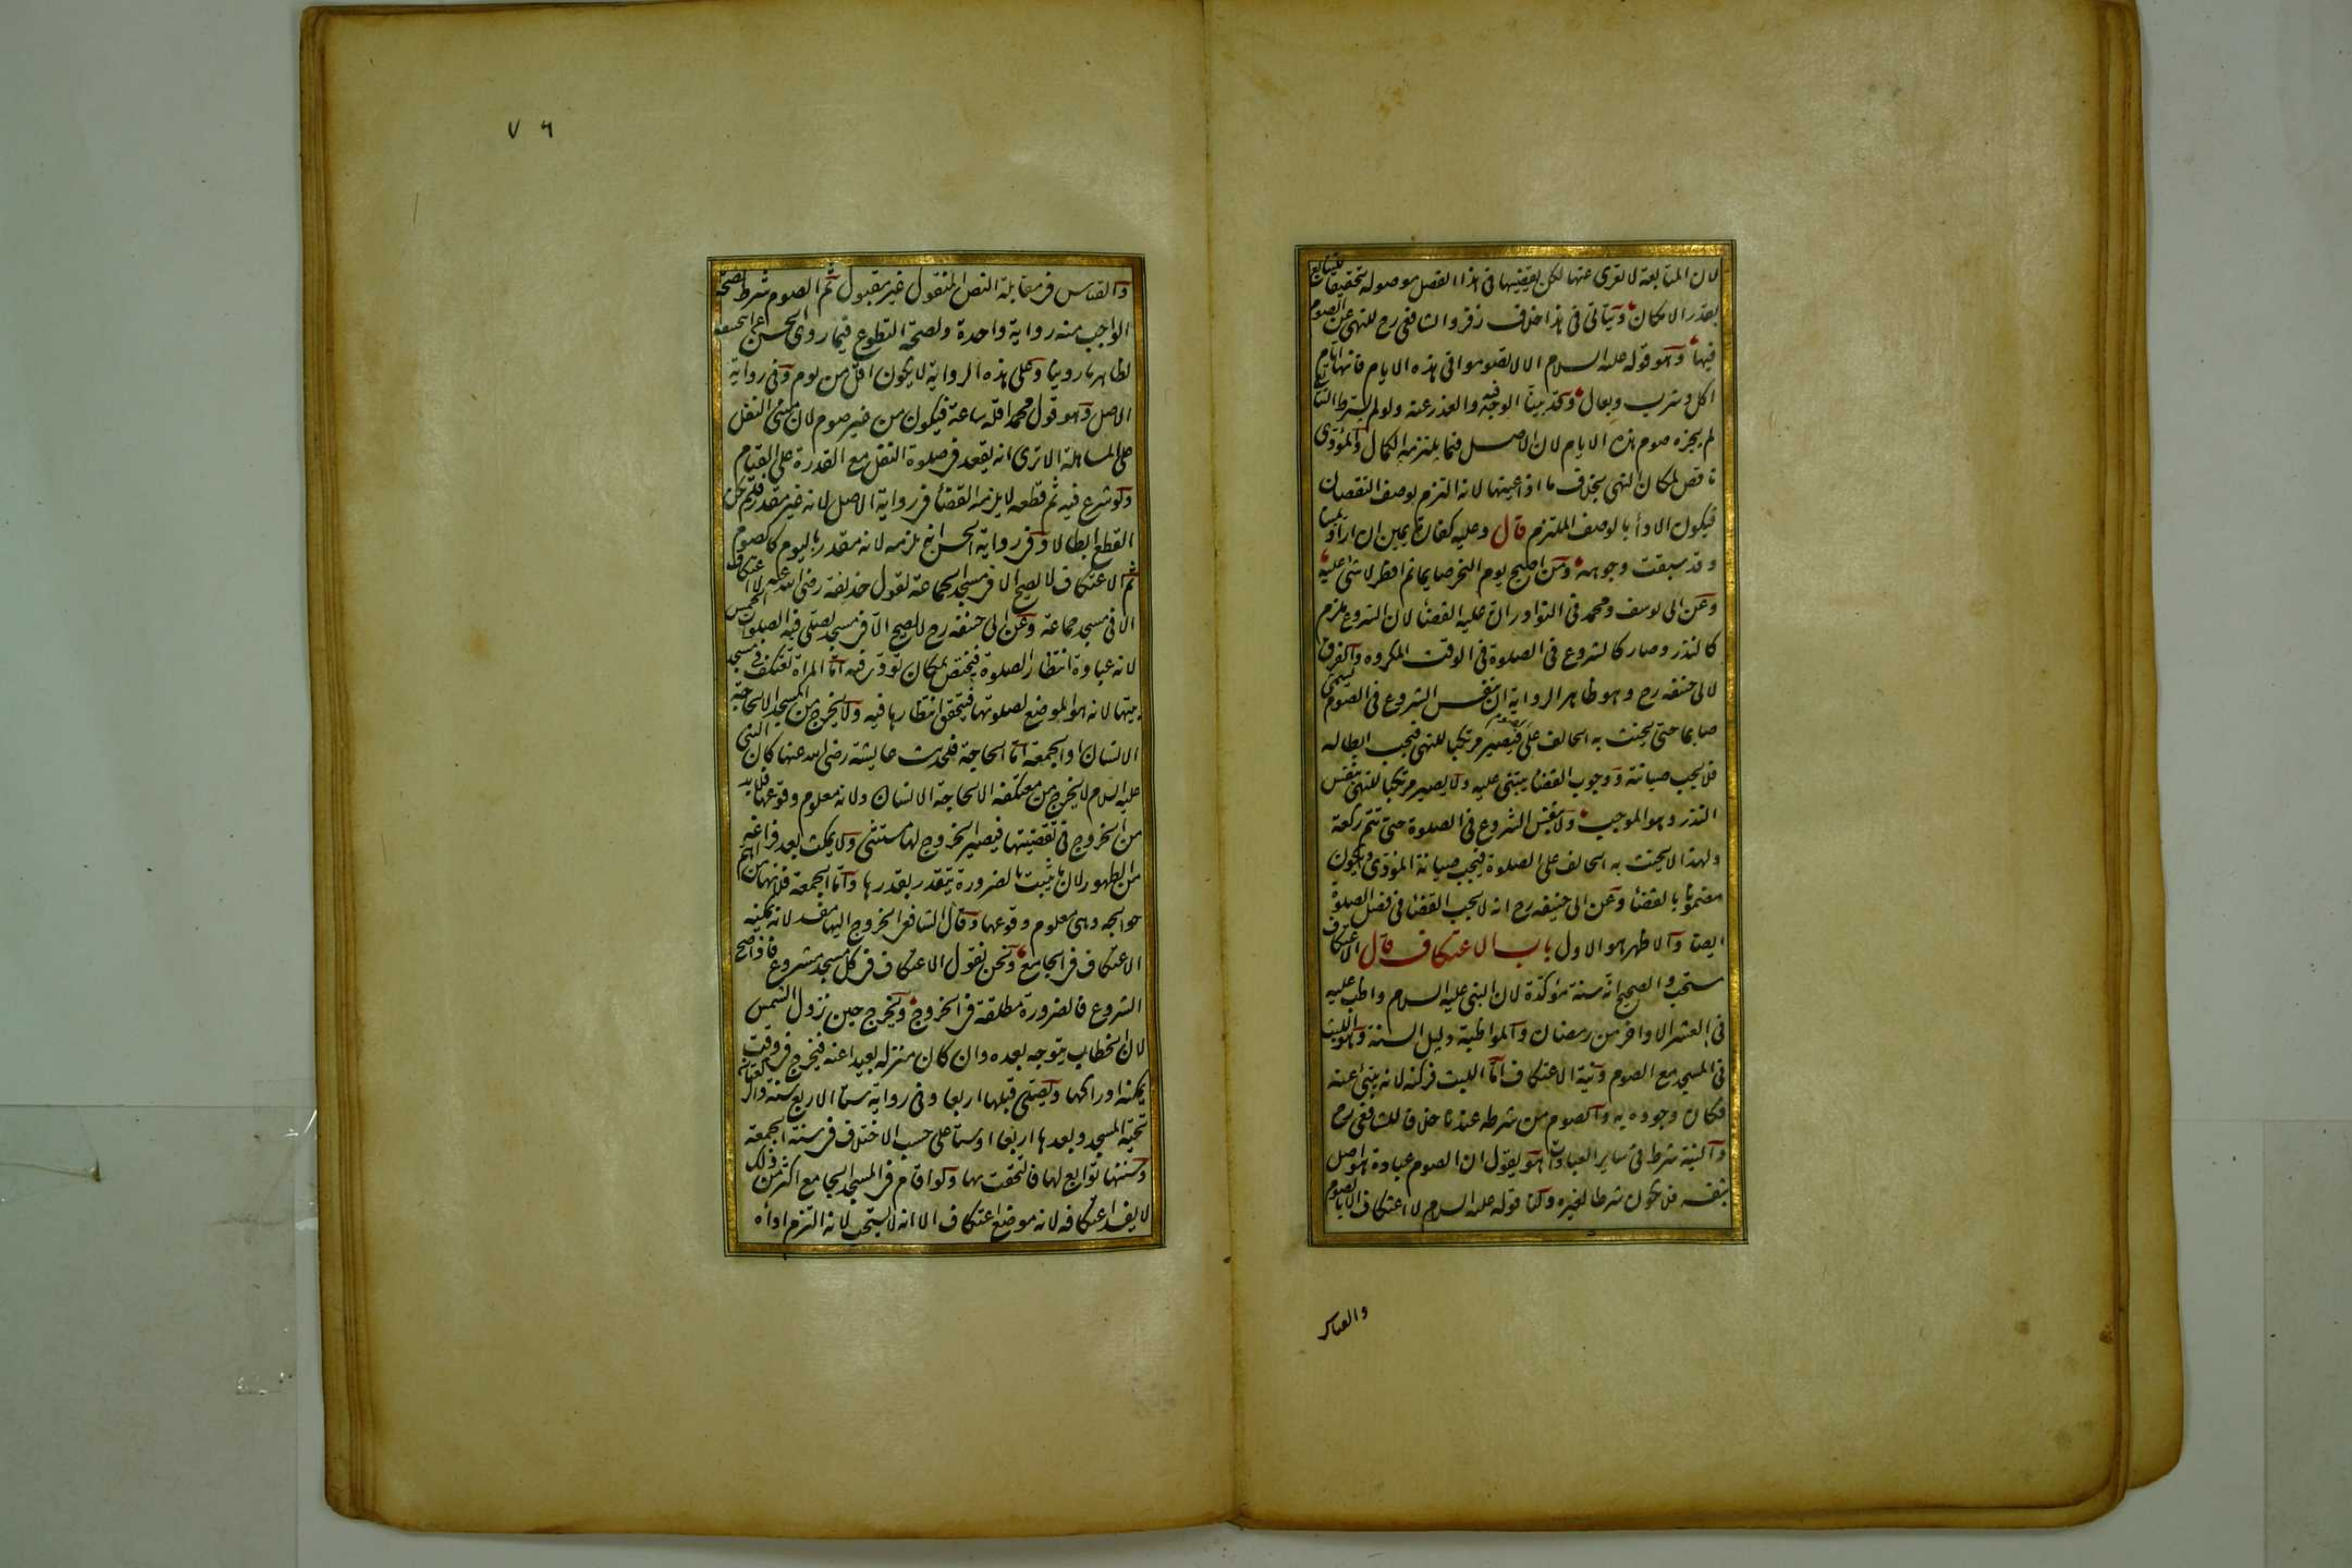 لان المتابعة لا تعرى عنها لكن يقضيها فى هذا الفصل موصولة تحقيقا للتتابع
بقدر الامكان ويتاتى فى هذا خلاف زفر والشافعى رح للنهى عن الصوم
فيها وهو قوله عليه السلام الا لا تصوموا فى هذه الايام فانها ايام
اكل وشرب وبعال وقد بينا الوجه فيه والعذر عنه ولو لم يشترط التتابع
لم يجزه صوم هذه الايام لان الاصل فيما يلتزمه الكمال والمؤدى
ناقص لمكان النهى بخلاف ما اذا عينها لانه التزم بوصف النقصان
فيكون الاداء بالوصف الملتزم قال وعليه كفارة يمين ان اراد يمينا
وقد سبقت وجوهه ومن اصبح يوم النحر صايما ثم افطر لا شى عليه
وعن ابى يوسف ومحمد فى النوادر ان عليه القضاء لان الشروع ملزم
كالنذر وصار كالشروع فى الصلوة فى الوقت المكروه والفرق
لابى حنيفه رح وهو ظاهر الرواية ان بنفس الشروع فى الصوم يسمى
صايما حتى يحنث به الحالف على الصوم فيصير مرتكبا للنهى فيجب ابطاله
فلا يجب صيانته ووجوب القضاء يبتنى عليه ولا يصير مرتكبا للنهى بنفس
النذر وهو الموجب ولا بنفس الشروع فى الصلوة حتى تتم ركعة
ولهذا لا يحنث به الحالف على الصلوة فيجب صيانة المؤدى ويكون
مضمونا بالقضاء وعن ابى حنيفه رح انه لا يجب القضاء فى فصل الصلوة
ايضا والاظهر هو الاول باب الاعتكاف قال الاعتكاف
مستحب والصحيح انه سنة مؤكدة لان النبى عليه السلام واظب عليه
فى العشر الاواخر من رمضان والمواظبة دليل السنة وهو اللبث
فى المسجد مع الصوم ونية الاعتكاف اما اللبث فركنه لانه ينبئ عنه
فكان وجوده به والصوم من شرطه عندنا خلافا للشافعى رح
والنية شرط فى ساير العبادات هو يقول ان الصوم عبادة هو اصل
بنفسه فلا يكون شرطا لغيره ولنا قوله عليه السلام لا اعتكاف الا بالصوم
والقياس
٧٦
والقياس فى مقابلة النص المنقول غير مقبول ثم الصوم شرط لصحة
الواجب منه رواية واحدة ولصحة التطوع فيما روى الحسن عن ابى حنيفه
لظاهر ما روينا وعلى هذه الرواية لا يكون اقل من يوم وفى رواية
الاصل وهو قول محمد اقله ساعة فيكون من غير صوم لان مبنى النفل
على المساهلة الا ترى انه يقعد فى صلوة النفل مع القدرة على القيام
ولو شرع فيه ثم قطعه لا يلزمه القضاء فى رواية الاصل لانه غير مقدر فلم يكن
القطع ابطالا وفى رواية الحسن رح يلزمه لانه مقدر باليوم كالصوم
ثم الاعتكاف لا يصح الا فى مسجد الجماعة لقول حذيفة رضى الله عنه لا اعتكاف
الا فى مسجد جماعة وعن ابى حنيفه رح لا يصح الا فى مسجد يصلى فيه الصلوات الخمس
لانه عبادة انتظار الصلوة فيختص بمكان تؤدى فيه اما المراة تعتكف فى مسجد
بيتها لانه هو الموضع لصلوتها فيتحقق انتظارها فيه ولا يخرج من المسجد الا لحاجة
الانسان او الجمعة اما الحاجة فلحديث عايشة رضى الله عنها كان النبى
عليه السلام لا يخرج من معتكفه الا لحاجة الانسان ولانه معلوم وقوعها فلا بد
من الخروج فى تقضيتها فيصير الخروج لها مستثنى ولا يمكث بعد فراغه
من الطهور لان ما يثبت بالضرورة يتقدر بقدرها واما الجمعة فلانها من اهم
حوايجه وهى معلوم وقوعها وقال الشافعى الخروج اليها مفسد لانه يمكنه
الاعتكاف فى الجامع ونحن نقول الاعتكاف فى كل مسجد مشروع فاذا صح
الشروع فالضرورة مطلقة فى الخروج ويخرج حين تزول الشمس
لان الخطاب يتوجه بعده وان كان منزله بعيدا عنه فيخرج فى وقت
يمكنه ادراكها ويصلى قبلها اربعا وفى رواية ستا الاربع سنة والركعتان
تحية المسجد وبعدها اربعا او ستا على حسب الاختلاف فى سنة الجمعة
وسنتها توابع لها فالتحقت بها ولو اقام فى المسجد الجامع اكثر من ذلك
لا يفسد اعتكافه لانه موضع اعتكاف الا انه لا يستحب لانه التزم اداءه